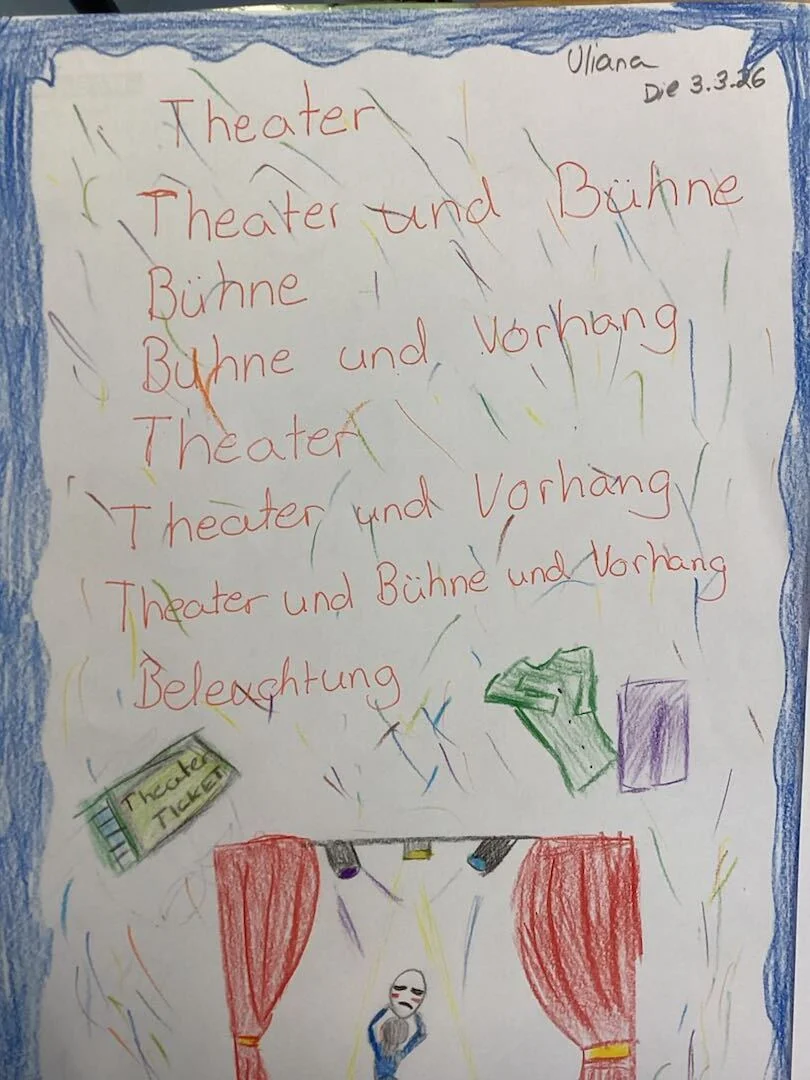 Uliana
Die 3.3.26
Theater
Theater und Bühne
Bühne
Buhne und Vorhang
Theater
Theater und Vorhang
Theater und Bühne und Vorhang
Beleuchtung
Theater
TICKET